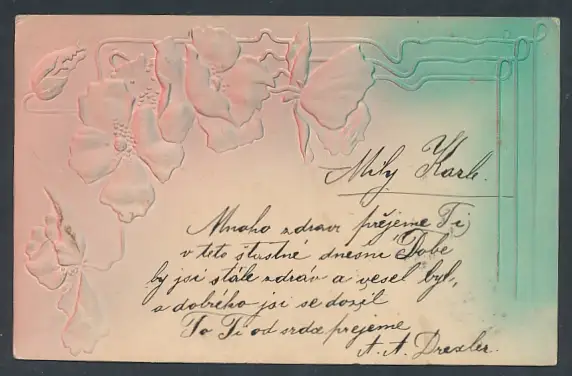 Milý Karle.
Mnoho zdraví přejeme Ti
v teto štastné dnešní Době
by jsi stále zdráv a vesel byl,
a dobrého jsi se dožil
To Ti od srdce přejeme
A. A. Drexler.